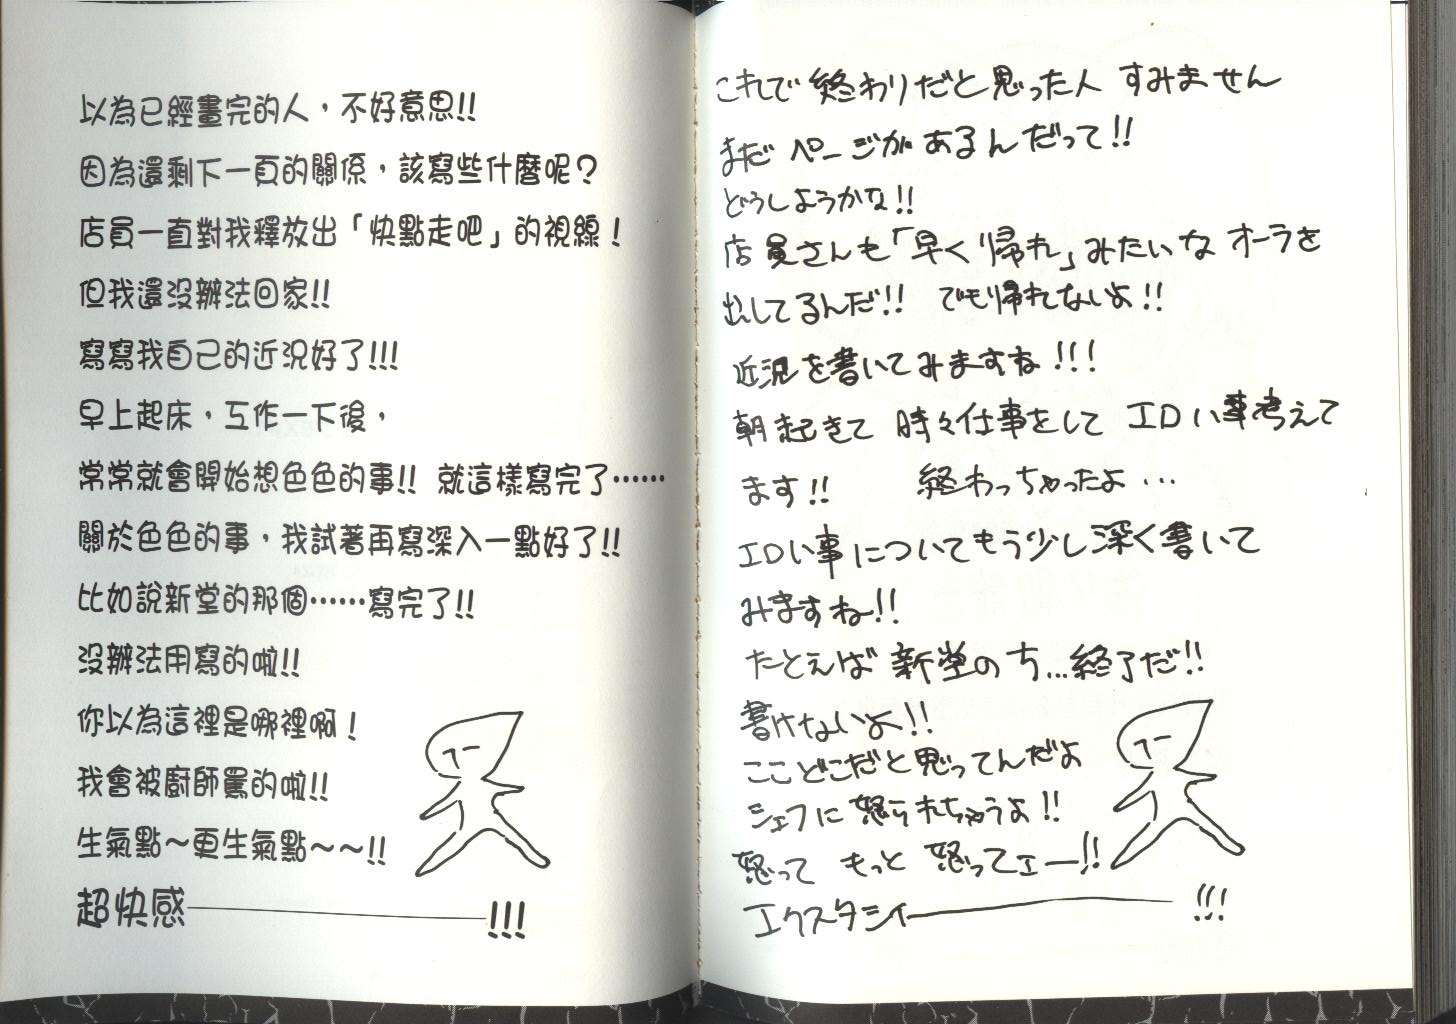 以為已經畫完的人，不好意思!!
因為還剩下一頁的關係，該寫些什麼呢？
店員一直對我釋放出「快點走吧」的視線！
但我還沒辦法回家!!
寫寫我自己的近況好了!!!
早上起床，工作一下後，
常常就會開始想色色的事!! 就這樣寫完了……
關於色色的事，我試著再寫深入一點好了!!
比如說新堂的那個……寫完了!!
沒辦法用寫的啦!!
你以為這裡是哪裡啊！
我會被廚師罵的啦!!
生氣點～更生氣點～～!!
超快感――!!!
これで終わりだと思った人 すみません
まだ ページが あるんだって!!
どうしようかな!!
店員さんも「早く帰れ」みたいな オーラを
出してるんだ!! でも帰れないよ!!
近況を書いてみますね!!!
朝起きて 時々仕事をして エロい事考えて
ます!! 終わっちゃったよ…
エロい事についてもう少し深く書いて
みますね!!
たとえば 新堂のち…終了だ!!
書けないよ!!
ここどこだと思ってんだよ
シェフに怒られちゃうよ!!
怒って もっと 怒ってェー!!
エクスタシィー――!!!